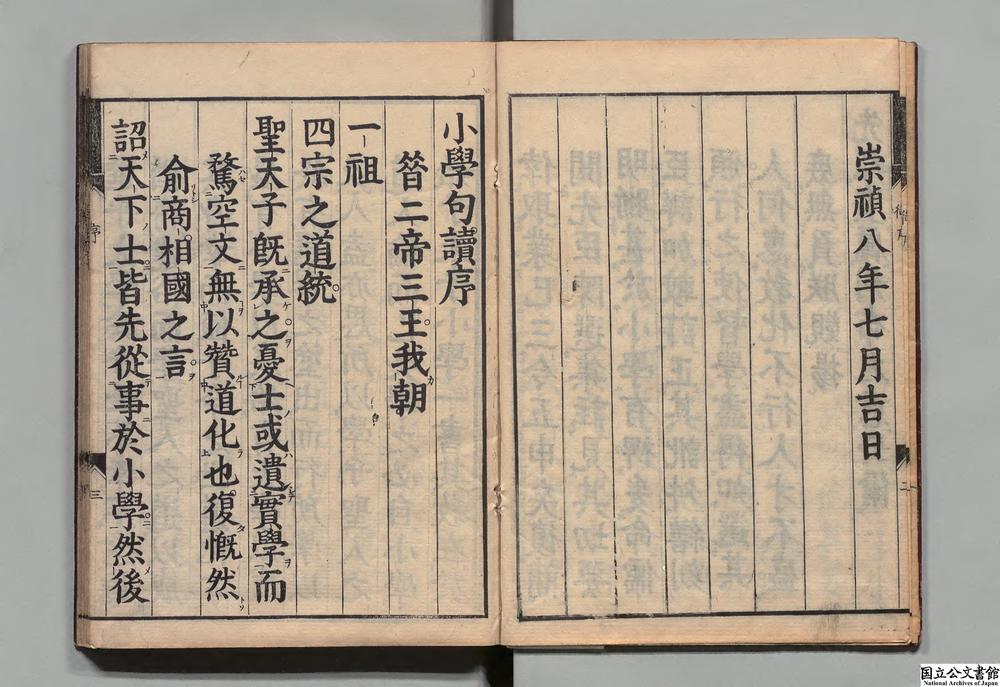 崇禎八年七月吉日
小學句讀序
昝二帝三王我朝
一祖
四宗之道統
聖天子既承之憂士或遺實學而
騖空文無以贊道化也復慨然
俞商相國之言
詔天下士皆先從事於小學然後
序
三
二
国立公文書館
National Archives of Japan